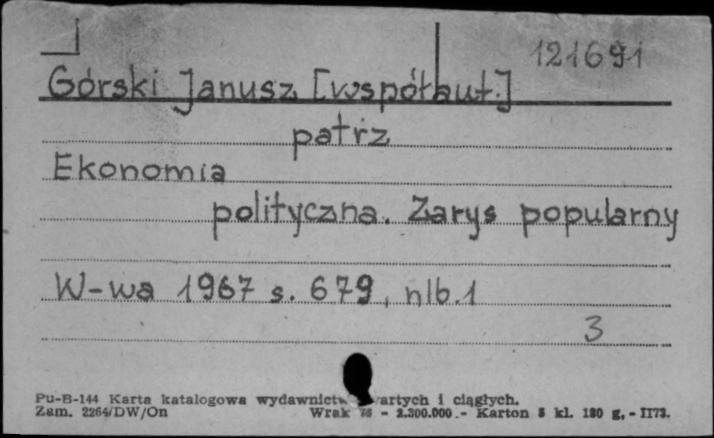 121691
Górski Janusz [współaut.]
patrz
Ekonomia
polityczna. Zarys popularny
W-wa 1967 s. 679, nlb. 1
3
Pu-B-144 Karta katalogowa wydawnictw zwartych i ciągłych.
Zam. 2264/DW/On Wrak 76 - 2.300.000.- Karton 5 kl. 180 g. - II73.